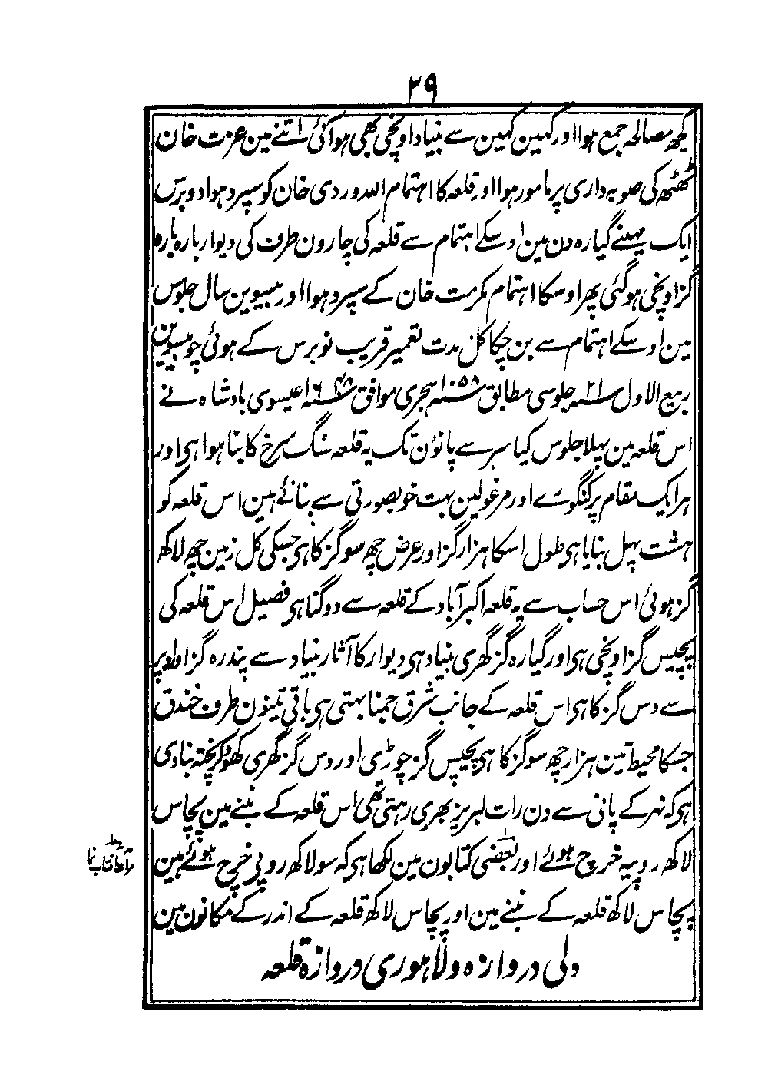 ۳۹
کچھ مصالحہ جمع ہوا اور کہین کہین سے بنیاد اونچی بھی ہو آئی اتنے مین عزت خان
ٹھٹھ کی صوبہ داری پر مامور ہوا اور قلعہ کا اہتمام اللہ وردی خان کو سپرد ہوا دو برس
ایک مہینے گیارہ دن مین اوسکے اہتمام سے قلعہ کی چارون طرف کی دیوار بارہ بارہ
گز اونچی ہو گئی پھر اوسکا اہتمام مکرمت خان کے سپرد ہوا اور بیسوین سال جلوس
مین اوسکے اہتمام سے بن چکا کل مدت تعمیر قریب نو برس کے ہوئی چوبیسوین
ربیع الاول سنہ ۲۱ جلوسی مطابق سنہ ۱۰۵۸ ہجری موافق سنہ ۱۶۴۸ عیسوی بادشاہ نے
اس قلعہ مین پہلا جلوس کیا سر سے پانؤن تک یہ قلعہ سنگ سرخ کا بنا ہوا ہی اور
ہر ایک مقام پر کنگورے اور مرغولین بہت خوبصورتی سے بنائے ہین اس قلعہ کو
ہشت پہل بنایا ہی طول اسکا ہزار گز اور عرض چھ سو گز کا ہی جسکی کل زمین چھ لاکھ
گز ہوئی اس حساب سے یہ قلعہ اکبرآباد کے قلعہ سے دوگنا ہی فصیل اس قلعہ کی
پچیس گز اونچی ہی اور گیارہ گز گھری بنیاد ہی دیوار کا آثار بنیاد سے پندرہ گز اور اوپر
سے دس گز کا ہی اس قلعہ کے جانب شرق جمنا بہتی ہی باقی تینون طرف خندق
جسکا محیط تین ہزار چھ سو گز کا ہی پچیس گز چوڑی اور دس گز گھری کھود کر پختہ بنا دی
ہی کہ نہر کے پانی سے دن رات لبریز بھری رہتی تھی اس قلعہ کے بننے مین پچاس
لاکھ روپیہ خرچ ہوئے اور بعضی کتابون مین لکھا ہی کہ سو لاکھ روپی خرچ ہوئے ہین
پچاس لاکھ قلعہ کے بننے مین اور پچاس لاکھ قلعہ کے اندر کے مکانون مین
دلی دروازہ و لاہوری دروازۂ قلعہ